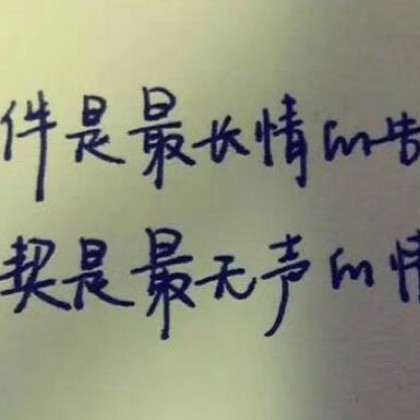 件是最长情的告
契是最无声的情